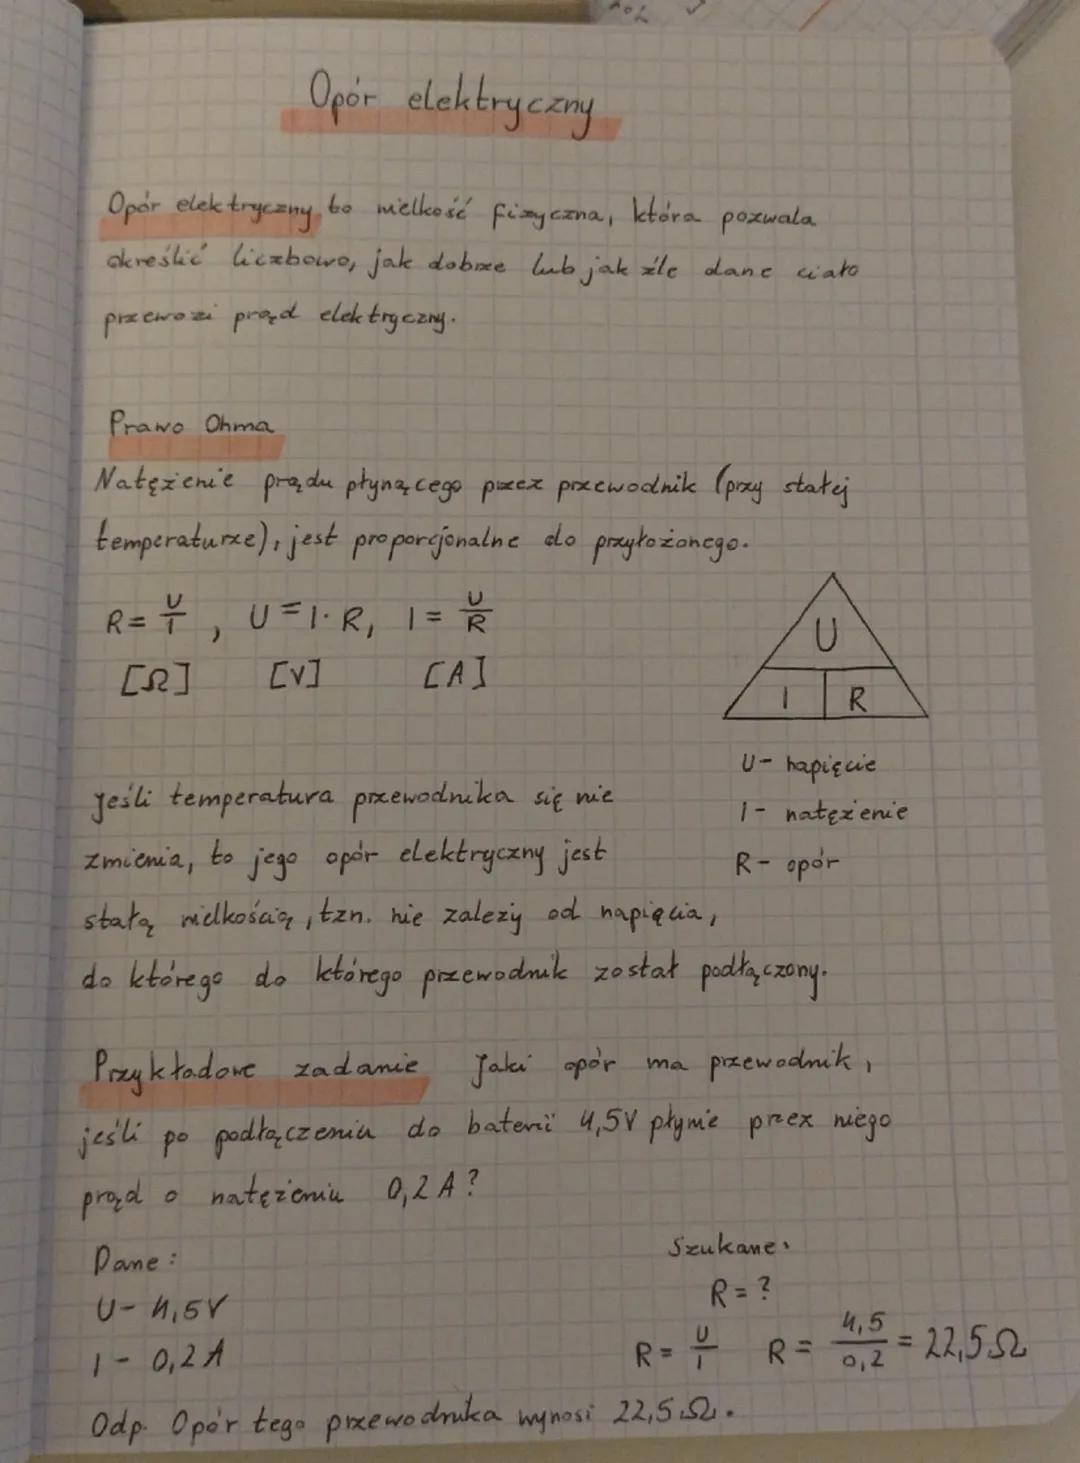 Opór elektryczny
Opór elektryczny to wielkość fizyczna, która pozwala
określić liczbowo, jak dobrze lub jak źle dane ciało
przewozi prąd elektryczny.
Prawo Ohma
Natężenie prądu płynącego przez przewodnik (przy stałej
temperaturze), jest proporcjonalne do przyłożonego.
R = U/I , U = I · R, I = U/R
[Ω] [V] [A]
U
I R
U - napięcie
I - natężenie
R - opór
Jeśli temperatura przewodnika się nie
zmienia, to jego opór elektryczny jest
stałą wielkością, tzn. nie zależy od napięcia,
do którego do którego przewodnik został podłączony.
Przykładowe zadanie Jaki opór ma przewodnik,
jeśli po podłączeniu do baterii 4,5V płynie przez niego
prąd o natężeniu 0,2 A?
Dane: Szukane:
U - 4,5V R = ?
I - 0,2 A R = U/I R = 4,5/0,2 = 22,5 Ω
Odp. Opór tego przewodnika wynosi 22,5 Ω.